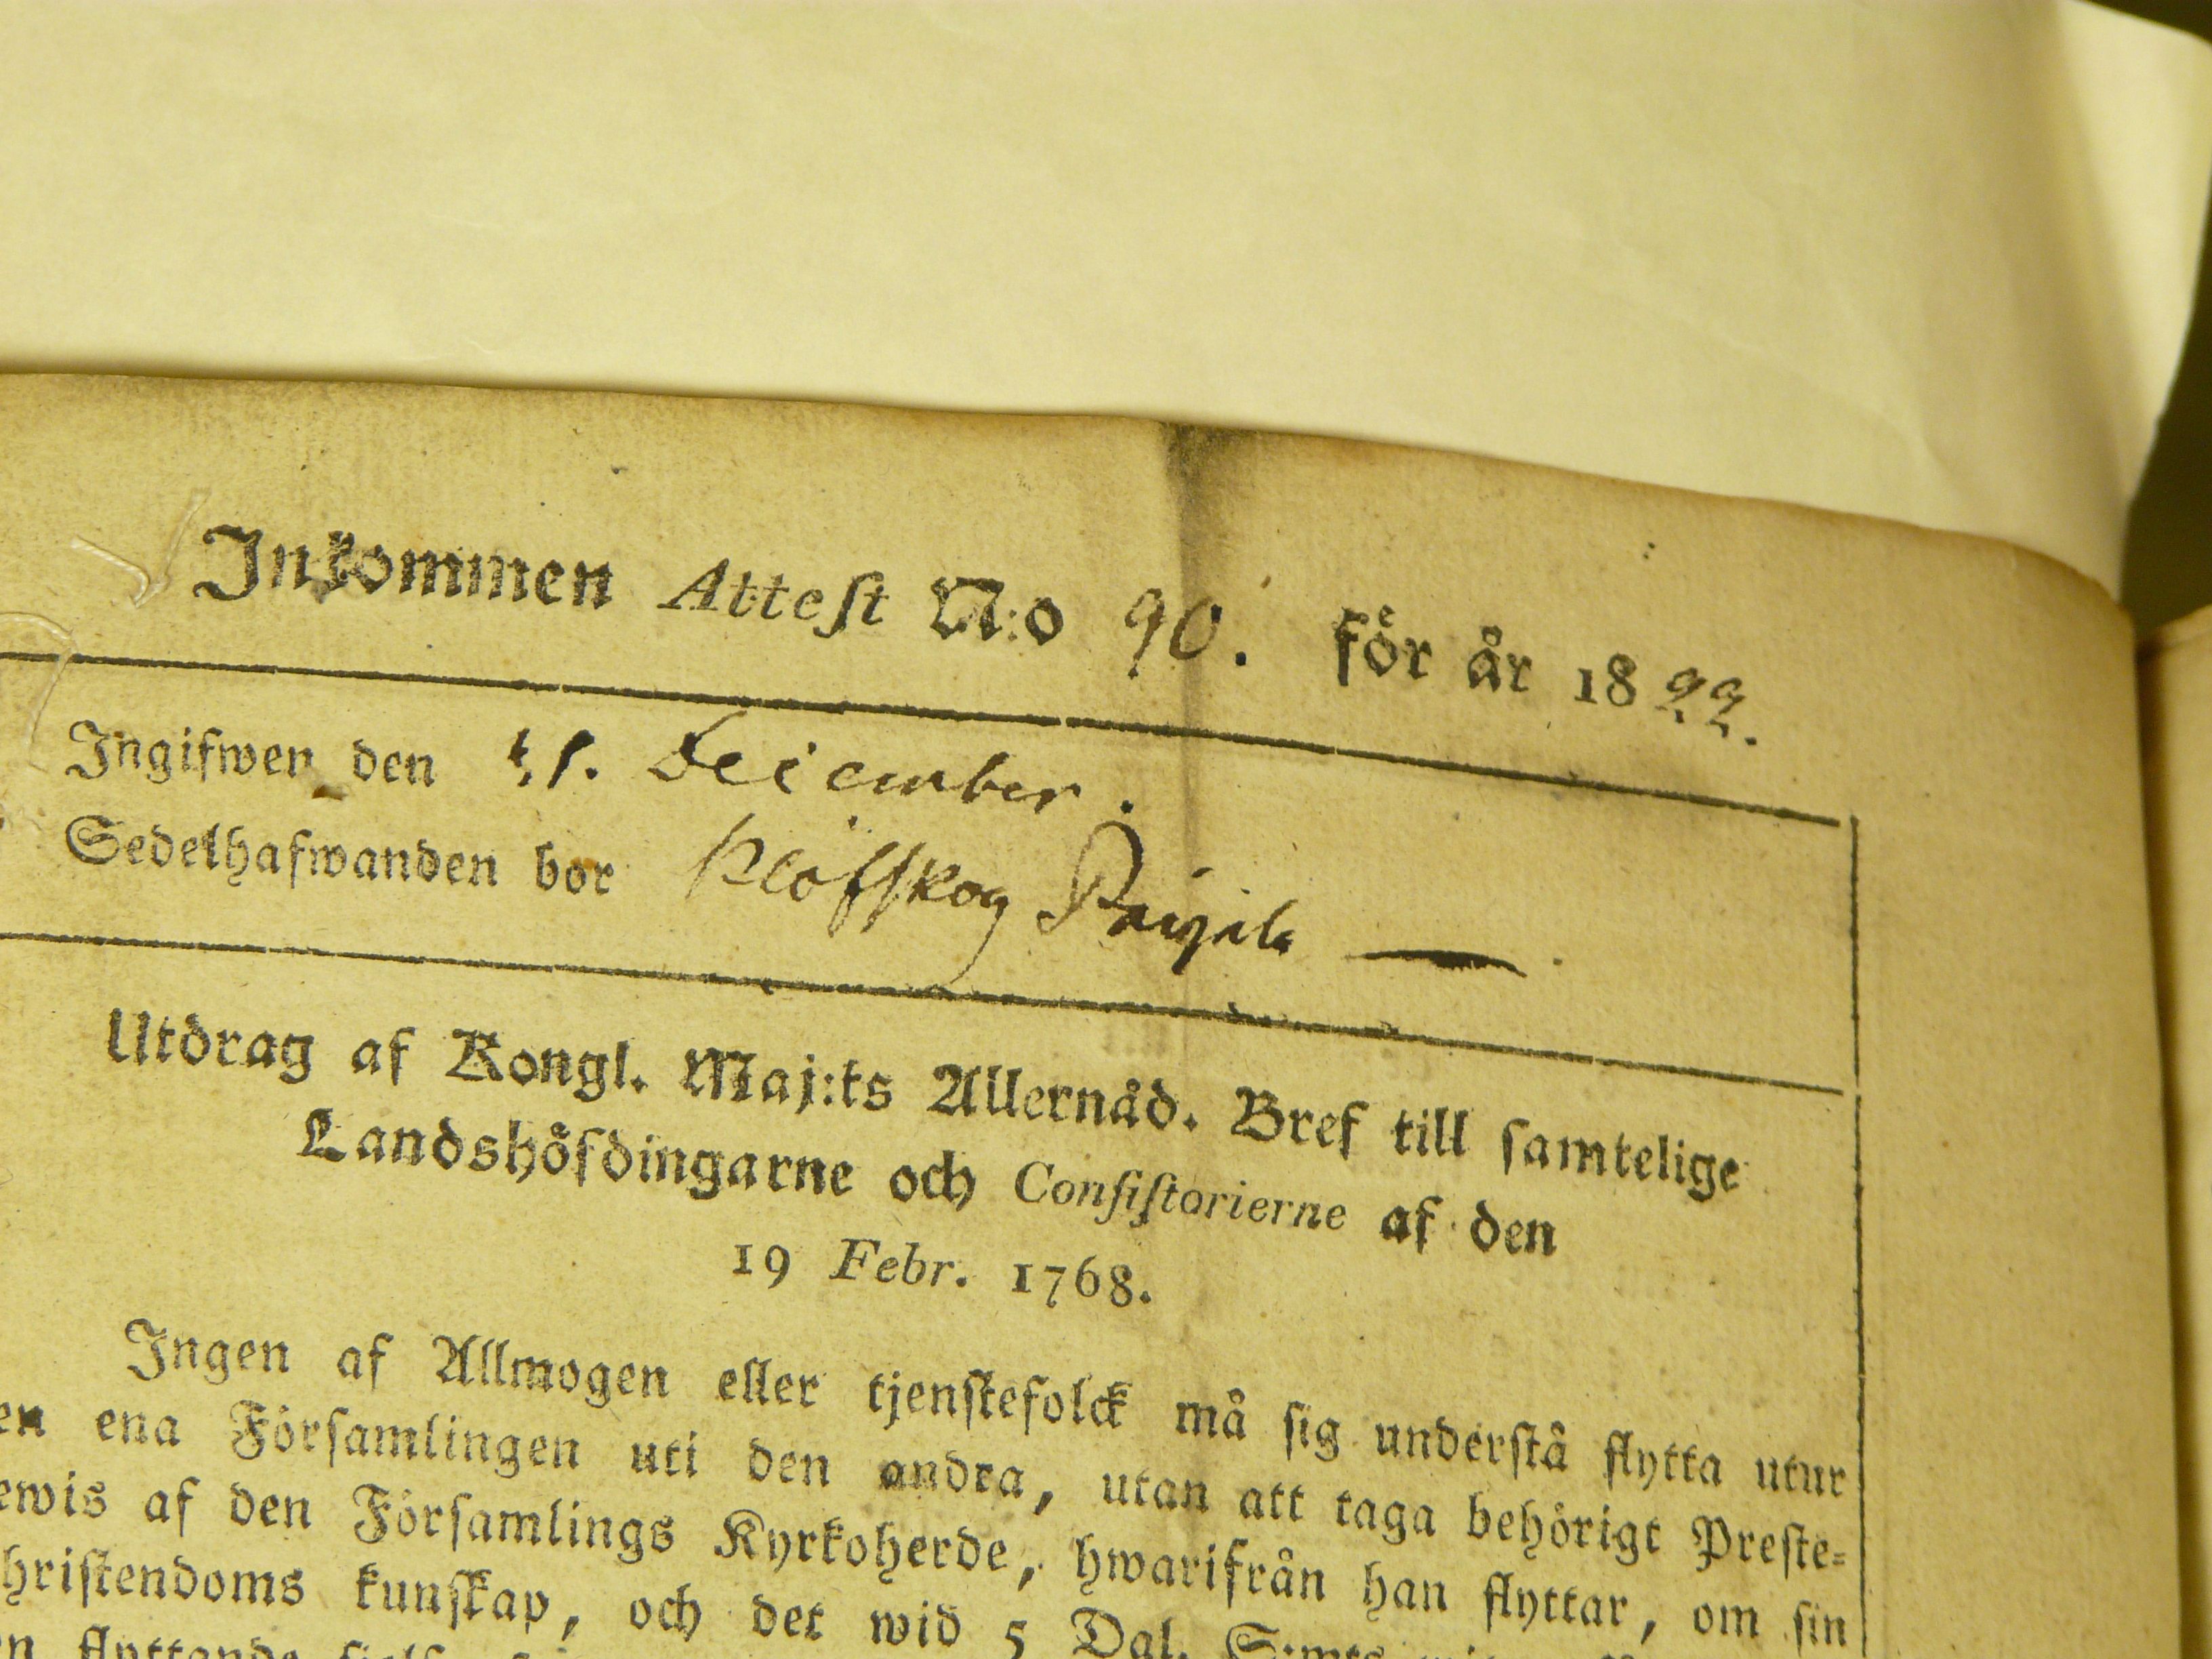 Inkommen Atteſt N:o 90. för år 1822.
Ingifwen den December.
Sedelhafwanden bor Klöfſkog
Utdrag af Kongl. Maj:ts Allernåd. Bref till ſamtelige
Landshöfdingarne och Conſiſtorierne af den
19 Febr. 1768.
Ingen af Allmogen eller tjenſtefolck må ſig underſtå flytta utur
en ena Förſamlingen uti den andra, utan att taga behörigt Preſte-
ewis af den Förſamlings Kyrkoherde, hwarifrån han flyttar, om ſin
hriſtendoms kunſkap, och det wid 5 Dal. S:mts
flyttande